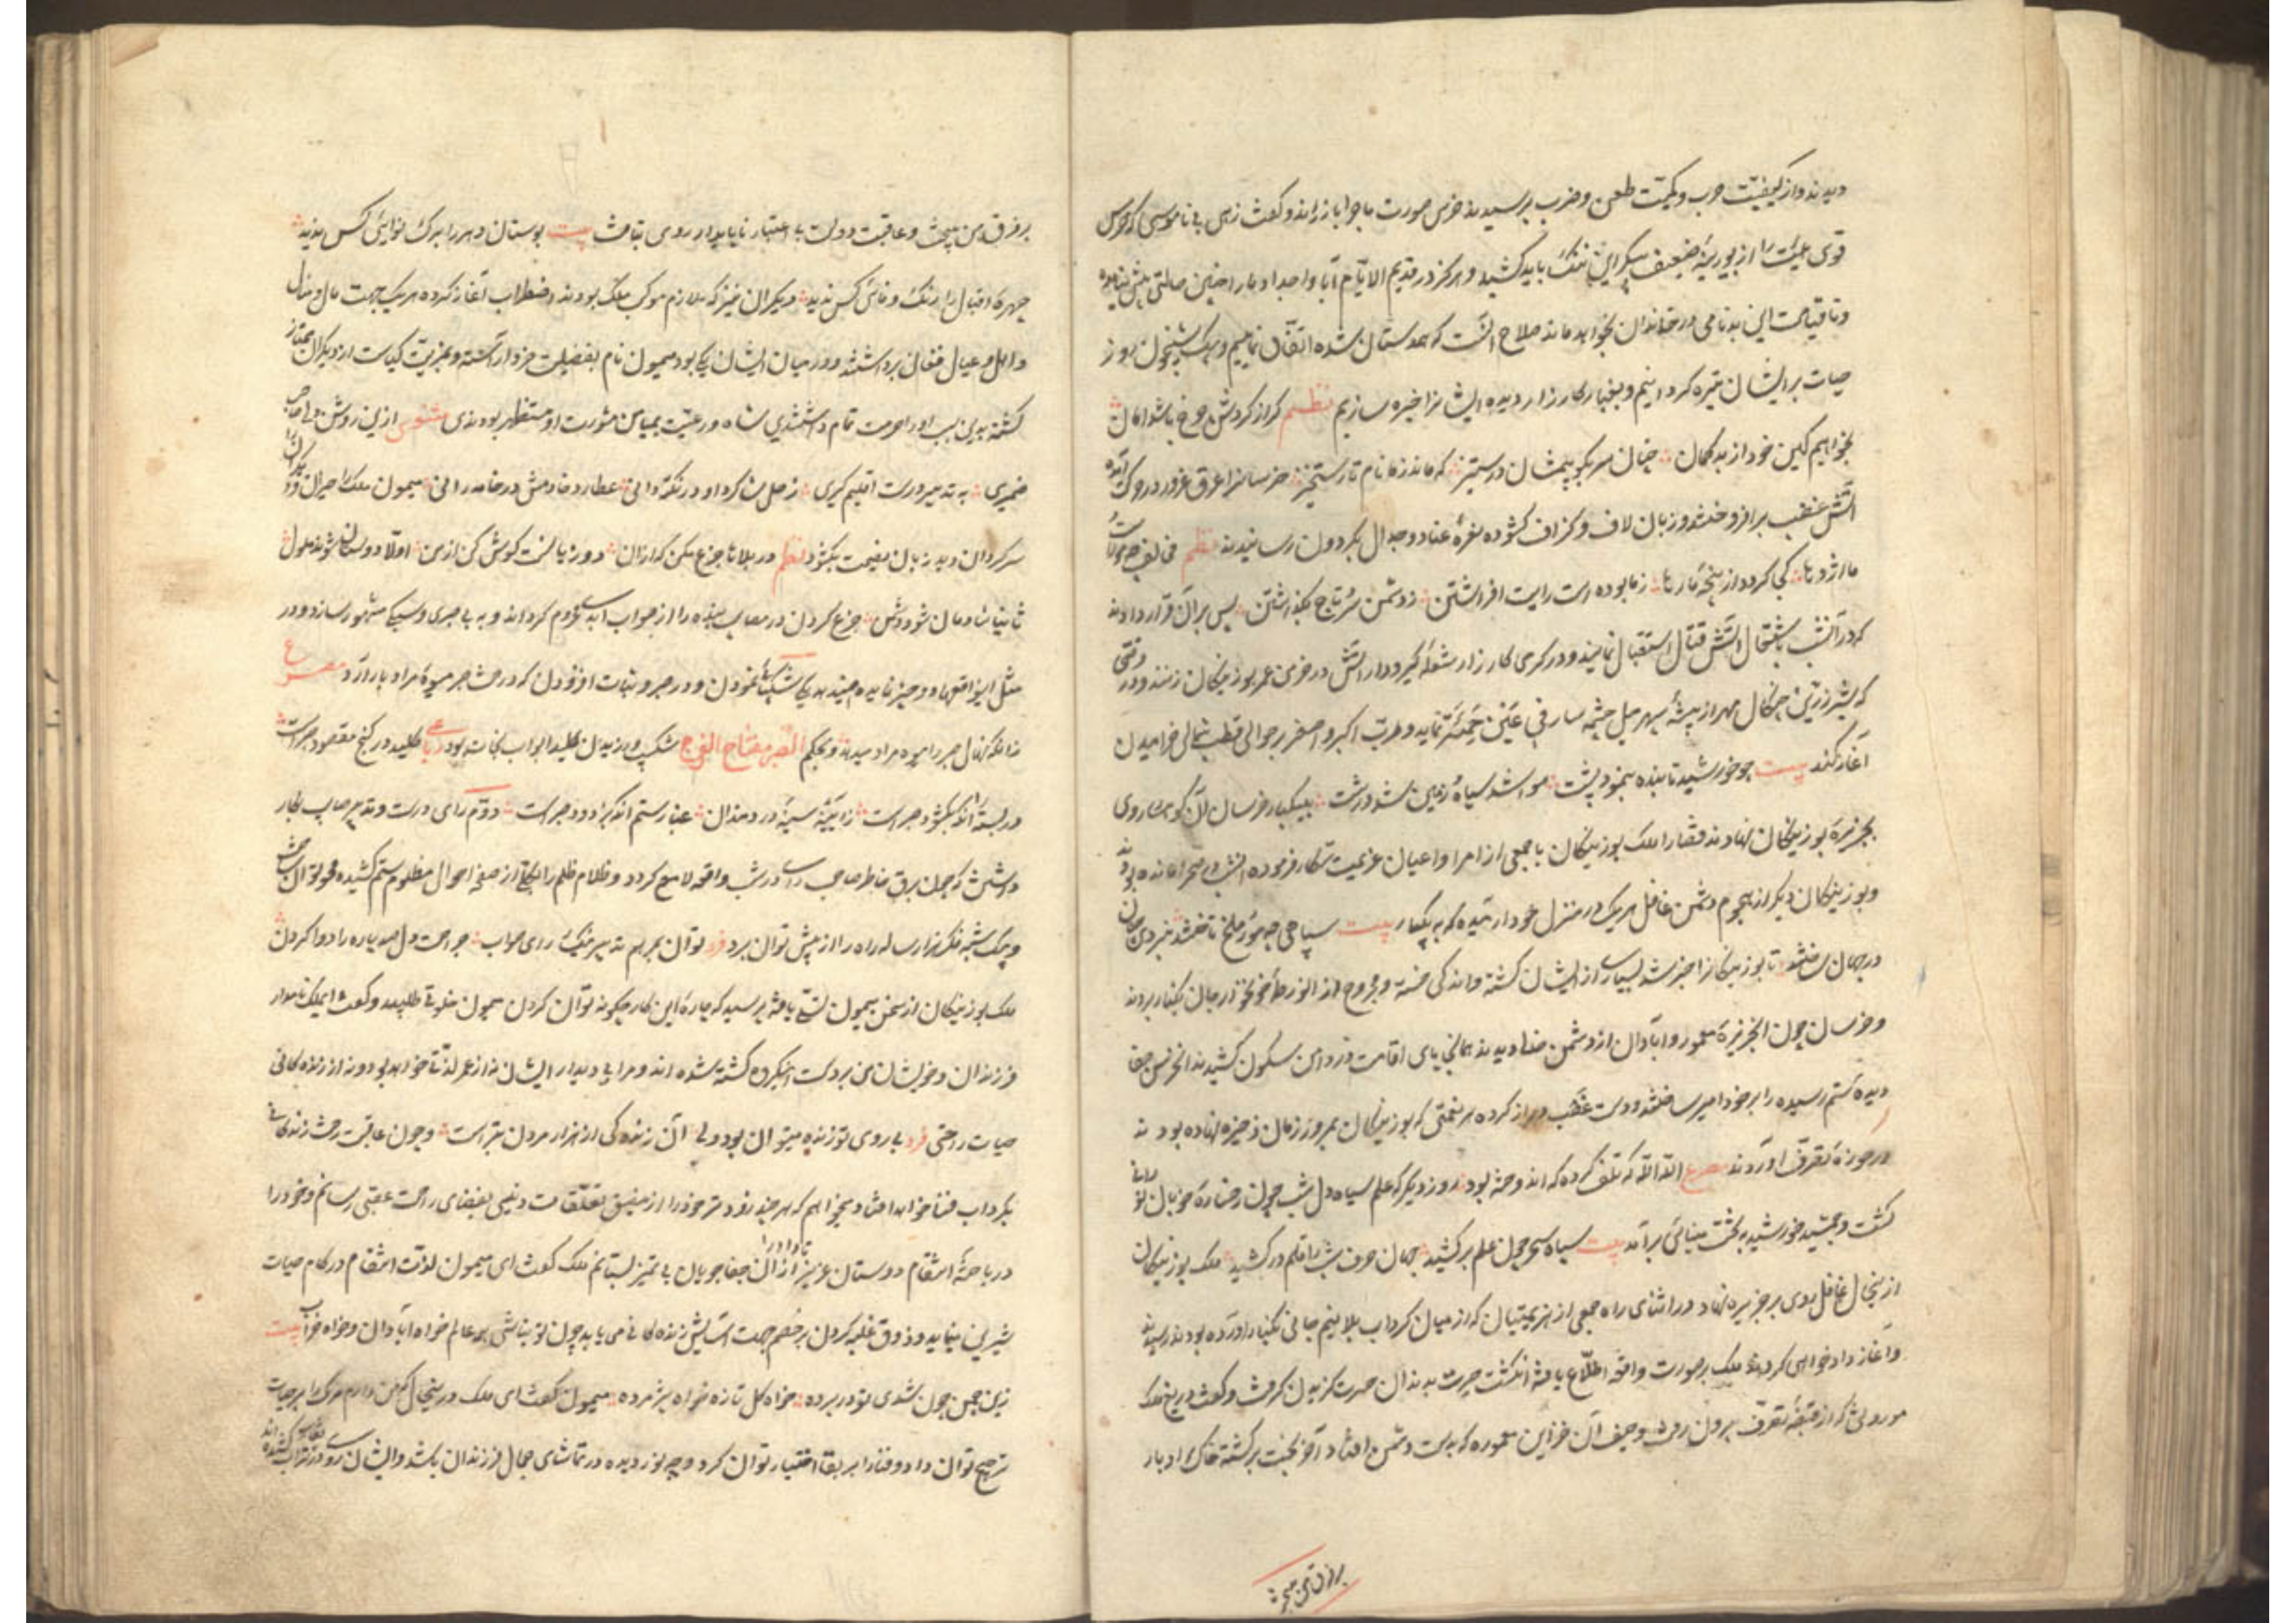 دیدند و از کیفیّت حرب و کمیّت طعن و ضرب پرسیدند خرس صورت ماجرا باز راند و گفت زهی بی ناموسی که خرس
قوی هیئت را از بوزینهٔ ضعیف پیکر این ننگ باید کشید و هرگز در قدیم الایّام آبا و اجداد ما را چنین حالتی پیش نیامده
و تا قیامت این بدنامی در خاندان بخواهد ماند صلاح آنست که همدستان شده اتفاق نماییم و بیک شبیخون روز
حیات بر ایشان تیره گردانیم و بغبار کارزار دیده ایشانرا خیره سازیم نظم گر از گردش چرخ باشد امان
بخواهیم کین خود از بدگمان چنان سر بکوبیمشان در ستیز که ماند زما نام تا رستخیز خرسانرا عرق غرور در حرکت آمده
آتش غضب برافروختند و زبان لاف و گزاف گشوده نعرهٔ عناد و جدال بگردون رسانیدند نظم مخالف چو مور است
ما اژدها کی گردد از پنجهٔ ما رها زما بوده است رایت افراشتن ز دشمن سر و تاج بگذاشتن پس بر آن قرار دادند
که در آنشب باشتعال آتش قتال استقبال نمایند و در گرمی کارزار شعلهٔ گیرودار آتش در خرمن عمر بوزینگان زنند و در وقتی
که شیر زرّین چنگال مهر از بیشهٔ سپهر میل چشمه سار فی عین حمئة نماید و دبّ اکبر و اصغر بر حوالی قطب شمالی خرامیدن
آغاز کند بیت چو خورشید تابنده بنمود پشت هوا شد سیاه و زمین شد درشت بیکبار خرسان از آن کوهسار روی
بجزیرهٔ بوزینگان نهادند قضا را ملک بوزینگان با جمعی از امرا و اعیان عزیمت شکار فرموده آنشب در صحرا مانده بودند
و بوزینگان دیگر از هجوم دشمن غافل هر یک در منزل خود آرمیده که به یکبار بیت سپاهی چو مور و ملخ تاختند نبردی
در جهان ساختند تا بوزینگانرا خبر شد بسیاری از ایشان کشته و اندکی خسته و مجروح از آنورطهٔ خونخوار جان بکنار بردند
و خرسان چون آنجزیرهٔ معمور و آبادان از دشمن خالی دیدند همانجا پای اقامت در دامن سکون کشیدند آنخرس جفا
دیدهٔ ستم رسیده را بر خود امیر ساختند و دست غضب دراز کرده هر نعمتی که بوزینگان بمرور زمان ذخیره نهاده بودند
در حوزهٔ تصرّف آوردند مصرع الله الله که تلف کرد که اندوخته بود روز دیگر که علم سیاه دل شب چون رخسارهٔ خوبان نورانی
گشت و جمشید خورشید بر تخت مینائی برآمد بیت سپاه سحر چون علم برکشید جهان حرف شب را قلم درکشید ملک بوزینگان
ازینحال غافل روی بر جزیره نهاد در اثنای راه جمعی از هزیمتیان که از میان گرداب بلا نیم جانی بکنار آورده بودند رسیدند
و آغاز دادخواهی کردند ملک بر صورت واقعه اطلّاع یافته انگشت حیرت بدندان حسرت گزیدن گرفت و گفت دریغ ملک
موروثی که از قبضهٔ تصرّف بیرون رفت و حیف آن خزاین معموره که بدست دشمن افتاد آخر بخت برگشته خاک ادبار
بر فرق من بیخت
بر فرق من بیخت و عاقبت دولت بی اعتبار ناپایدار روی بتافت بیت بوستان دهر را برک نوایئی کس ندید
چهرهٔ اقبال را رنگ وفائی کس ندید دیگران نیز که ملازم موکب ملک بودند اضطراب آغاز کرده هر یک جهت مال و منال
و اهل و عیال فغان برداشتند و در میان ایشان یکی بود میمون نام بفضیلت خرد آراسته و بمزیّت کیاست از دیگران ممتاز
گشته بدین سبب او را حرمت تمام داشتندی شاه و رعیّت بمیامن مشورت او مستظهر بودندی مثنوی ازین روشن دلی صاحب
ضمیری به تدبیر درست اقلیم گیری زحل شاگرد او در نکته دانی عطارد خادمش در خامه رانی میمون ملک را حیران و دیگران را
سرگردان دید زبان نصیحت بگشود نظم در بلاها جزع مکن که ازان دو زیانست گوش کن از من اولا دوستان شوند ملول
ثانیا شادمان شود دشمن جزع کردن در مصایب بنده را از صواب ابد محروم گرداند و به بی صبری و سبکی مشهور سازد و در
مثل این واقعها دو چیز فایده میدهد یکی شکیبائی نمودن و در صبر و ثبات افزودن که درخت صبر میوهٔ مراد بار آرد مصرع
زانکه نهال صبر را میوه مراد میدهد و بحکم الصبر مفتاح الفرج شکیب ورزیدن کلید ابواب نجات بود رباعی کلید در گنج مقصود صبر است
در بسته آنکو بگشود صبر است ز آیینهٔ سینهٔ دردمندان غبار ستم آنکه بزدود صبر است دوّم رای درست و تدبیر صایب بکار
داشتن که چون برق خاطر صاحب رای در شب واقعه لامع گردد و ظلام ظلم را بکلی از صفحه احوال مظلوم ستم کشیده محو توان ساخت
و بیک شبه فکر هزار ساله راه را از پیش توان برد فرد توان بمرهم تدبیر نیک و رای صواب جراحت دل صد پاره را دوا کردن
ملک بوزینگان از سخن میمون تسلی یافته پرسید که چارهٔ این کار چگونه توان کردن میمون خلوتی طلبید و گفت ایملک نامدار
فرزندان و خویشان من بر دست اینگروه کشته شده اند و مرا بی دیدار ایشان نه از عمر لذتی خواهد بود و نه از زنده کانی
حیات راحتی فرد بی روی تو زنده میتوان بود ولی آن زنده گی از هزار مردن بتر است و چون عاقبت رخت زندگانی
بگرداب فنا خواهد افتاد میخواهم که هر چند زودتر خود را از مضیق تعلّقات دنیی بفضای راحت عقبی رسانم و خود را
در باخته انتقام دوستان عزیز تا داد را از ان جفا جویان بی تمیز بستانم ملک گفت ای میمون لذّت انتقام در کام حیات
شیرین مینماید و ذوق غلبه کردن بر خصم جهت آسایش زنده کانی می باید چون تو نباشی همه عالم خواه آبادان و خواه خراب بیت
زین چمن چون شدی تو در پرده خواه گل تازه خواه پژمرده میمون گفت ای ملک درینحال که من دارم مرگ را بر حیات
ترجیح توان داد و فنا را بر بقا اختیار توان کرد و چه نور دیده در تماشای جمال فرزندان باشد و ایشان روی در نقاب تراب کشیده اند